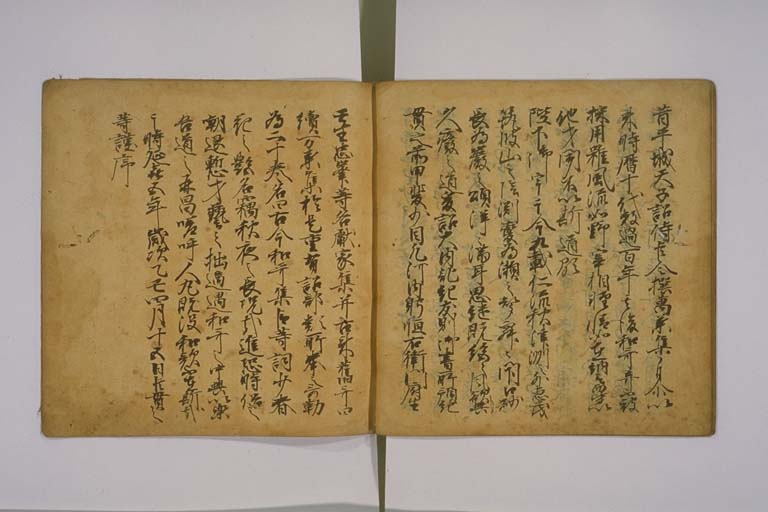 昔平城天子詔侍臣令撰萬葉集自爾以
来時歴十代数過百年其後和哥弃不被
採用雖風流如野宰相軽情如在納言皆以
他才聞不以斯道顕
陛下御宇于今九載仁流秋津洲之外恵茂
筑波山之陰渕變為瀬之聲寂々閇口砂
長為巌之頌洋々満耳思継既絶之風欲興
久廃之道爰詔大内記紀友則御書所預紀
貫之前甲斐少目凡河内躬恒右衛門府生
壬生忠峯等各献家集并古来舊哥曰
續万葉集於是重有詔部類所奉之哥勒
為二十巻名曰古今和哥集臣等詞少春
花之艶名竊秋夜之長況哉進恐時俗之
嘲退慙才藝之拙適遇和哥之中興以樂
吾道之再昌嗟呼人丸既没和歌不在斯哉
于時延喜五年歳次乙丑四月十五日臣貫之
等謹序